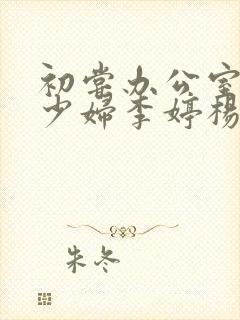 初尝办公室
少妇李婷杨
朱冬